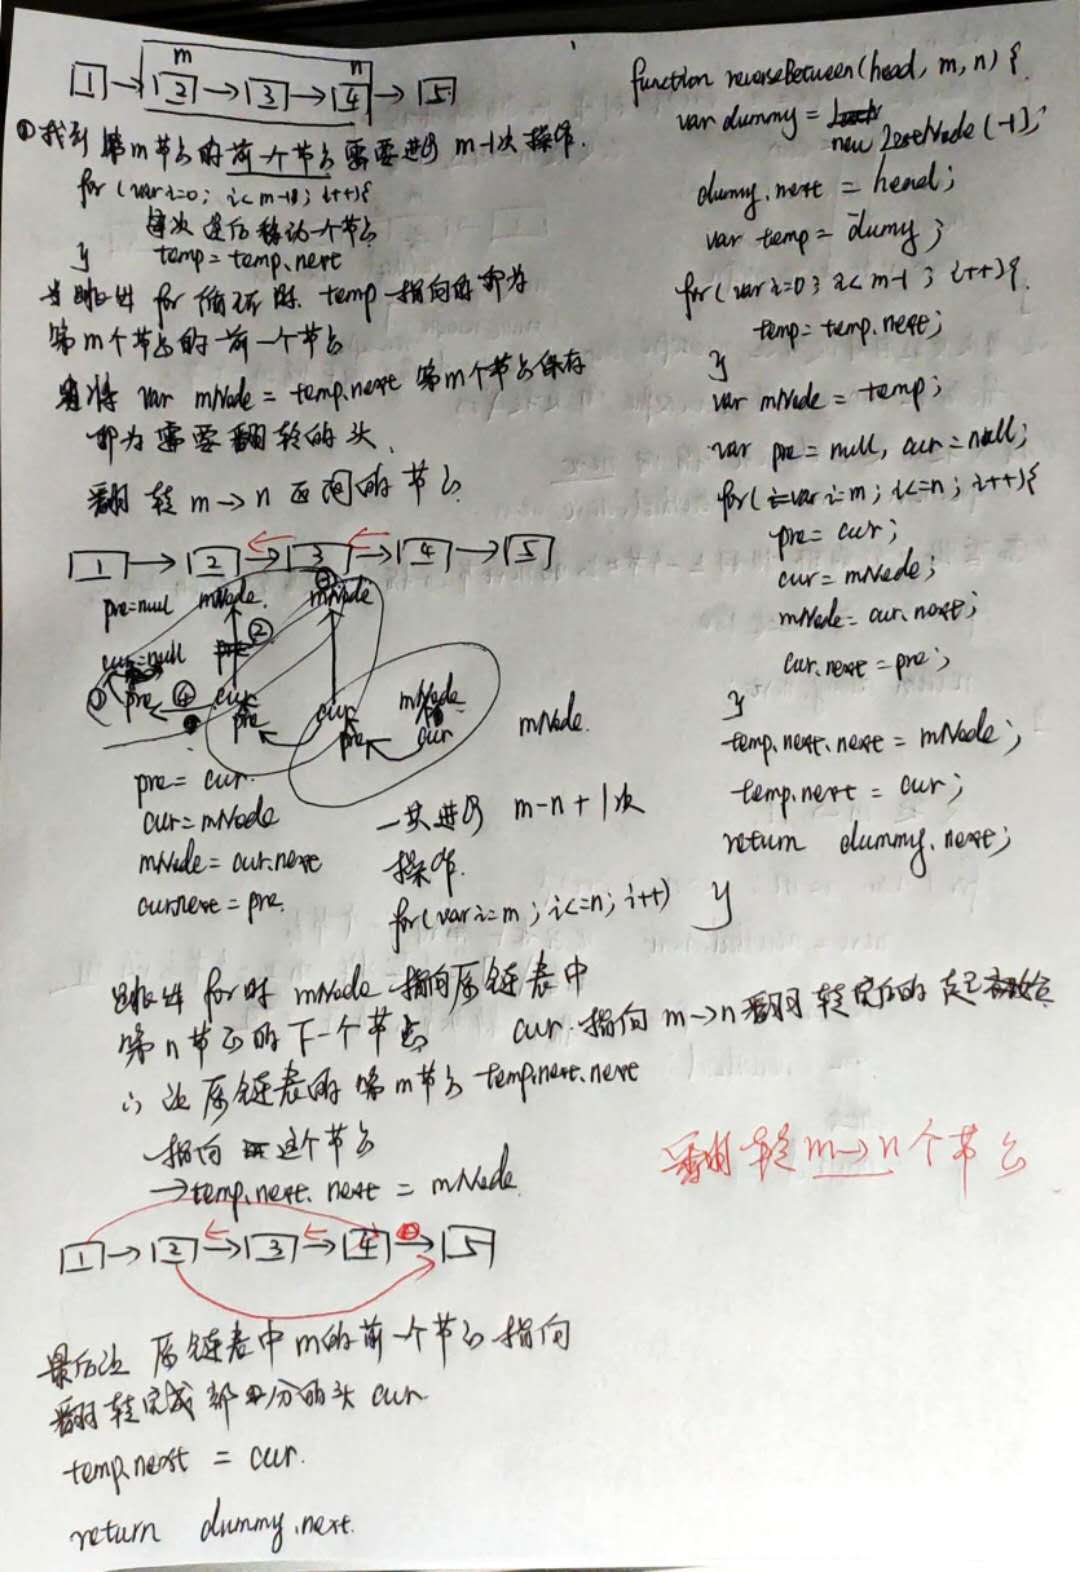 m n
1 → 2 → 3 → 4 → 5
① 找到第m节点的前一个节点需要进行 m-1次操作.
for (var i=0; i<m-1; i++){
每次 往后移动一个节点
temp = temp.next
}
当跳出 for 循环时. temp 指向的即为
第m个节点的前一个节点
将 var mNode = temp.next 第m个节点保存
即为需要翻转的头.
翻转 m→n 区间的节点
1 → 2 → 3 → 4 → 5
pre=null mNode. mNode
cur=null pre ②
③ pre ④ cur cur mNode
pre pre cur mNode.
pre = cur.
cur = mNode
mNode = cur.next
cur.next = pre.
一共进行 m-n+1次
操作.
for(var i=m; i<=n; i++)
跳出 for 时 mNode 指向原链表中
第n节点的下一个节点
cur 指向 m→n 翻转完后的起始
∴ 让原链表的第m节点 temp.next.next
指向 这个节点
→temp.next.next = mNode
1 → 2 → 3 → 4 → 5
最后让 原链表中m的前一个节点指向
翻转完成部分的头 cur
temp.next = cur.
return dummy.next.
function reverseBetween(head, m, n) {
var dummy =
new ListNode(-1);
dummy.next = head;
var temp = dumy;
for(var i=0; i<m-1; i++){
temp = temp.next;
}
var mNode = temp;
var pre = null, cur = null;
for(var i=m; i<=n; i++){
pre = cur;
cur = mNode;
mNode = cur.next;
cur.next = pre;
}
temp.next.next = mNode;
temp.next = cur;
return dummy.next;
}
翻转 m→n个节点